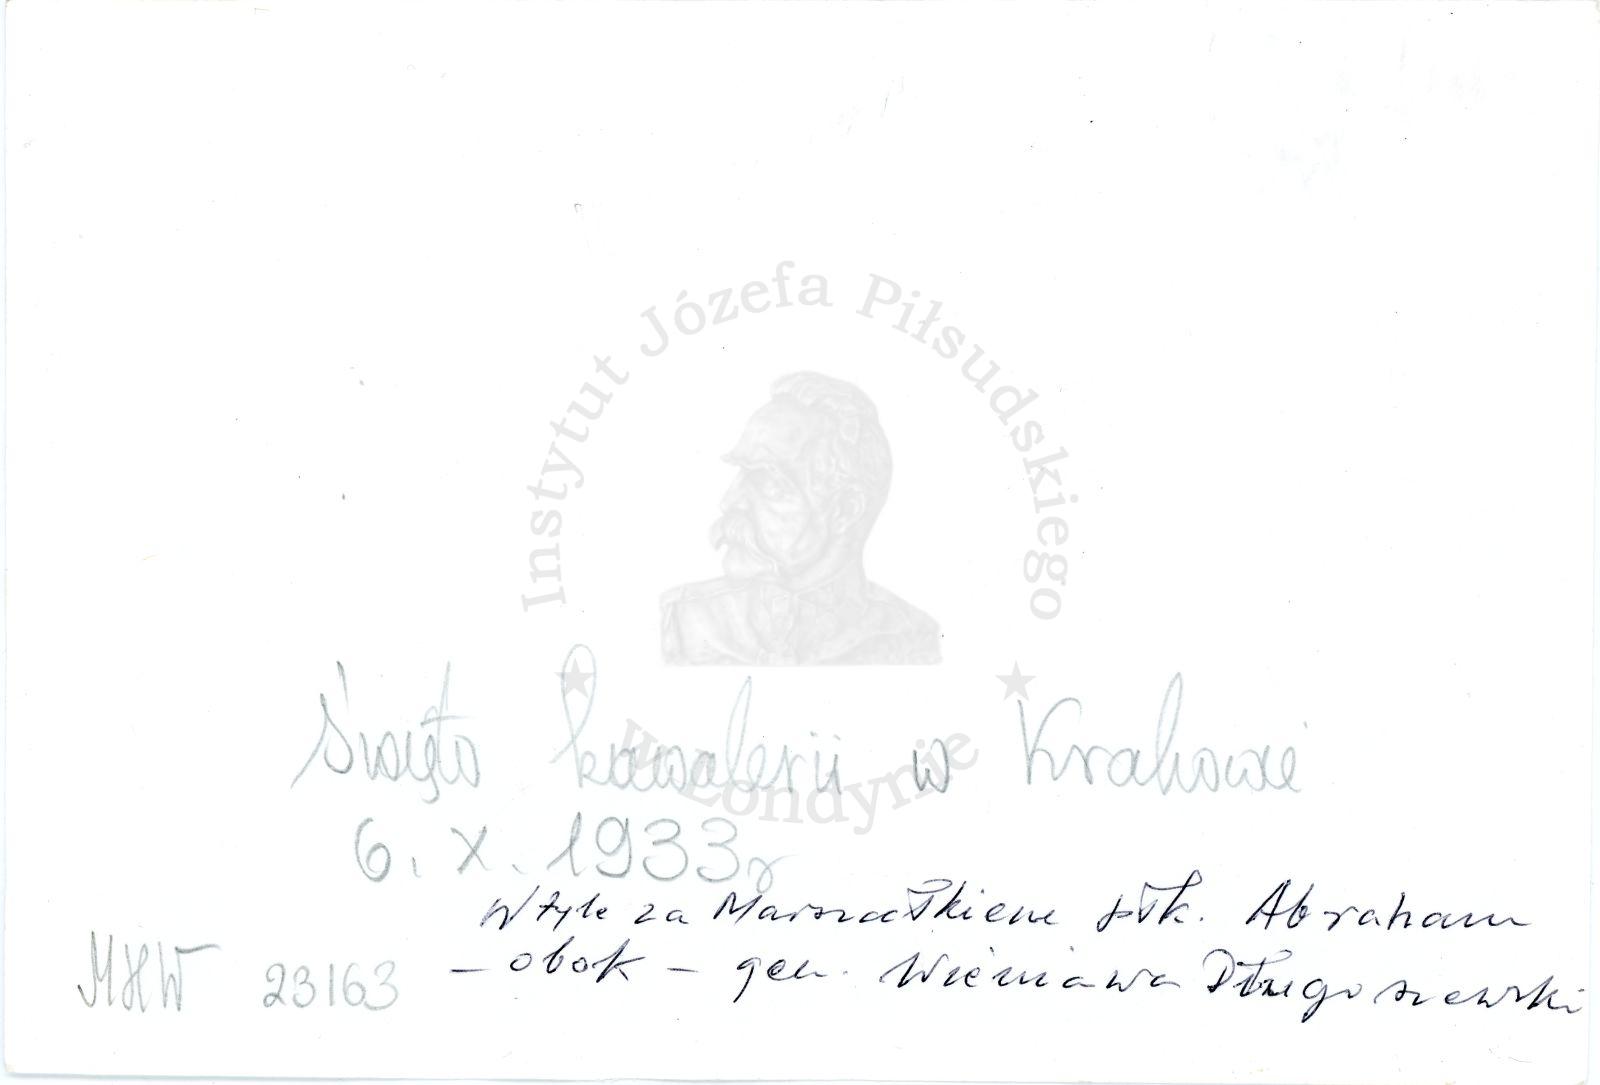 Instytut Józefa Piłsudskiego
w Londynie
Święto kawalerii w Krakowie
6. X. 1933 r
W tyle za Marszałkiem płk. Abraham
– obok – gen. Wieniawa Długoszewski
MHW 23163